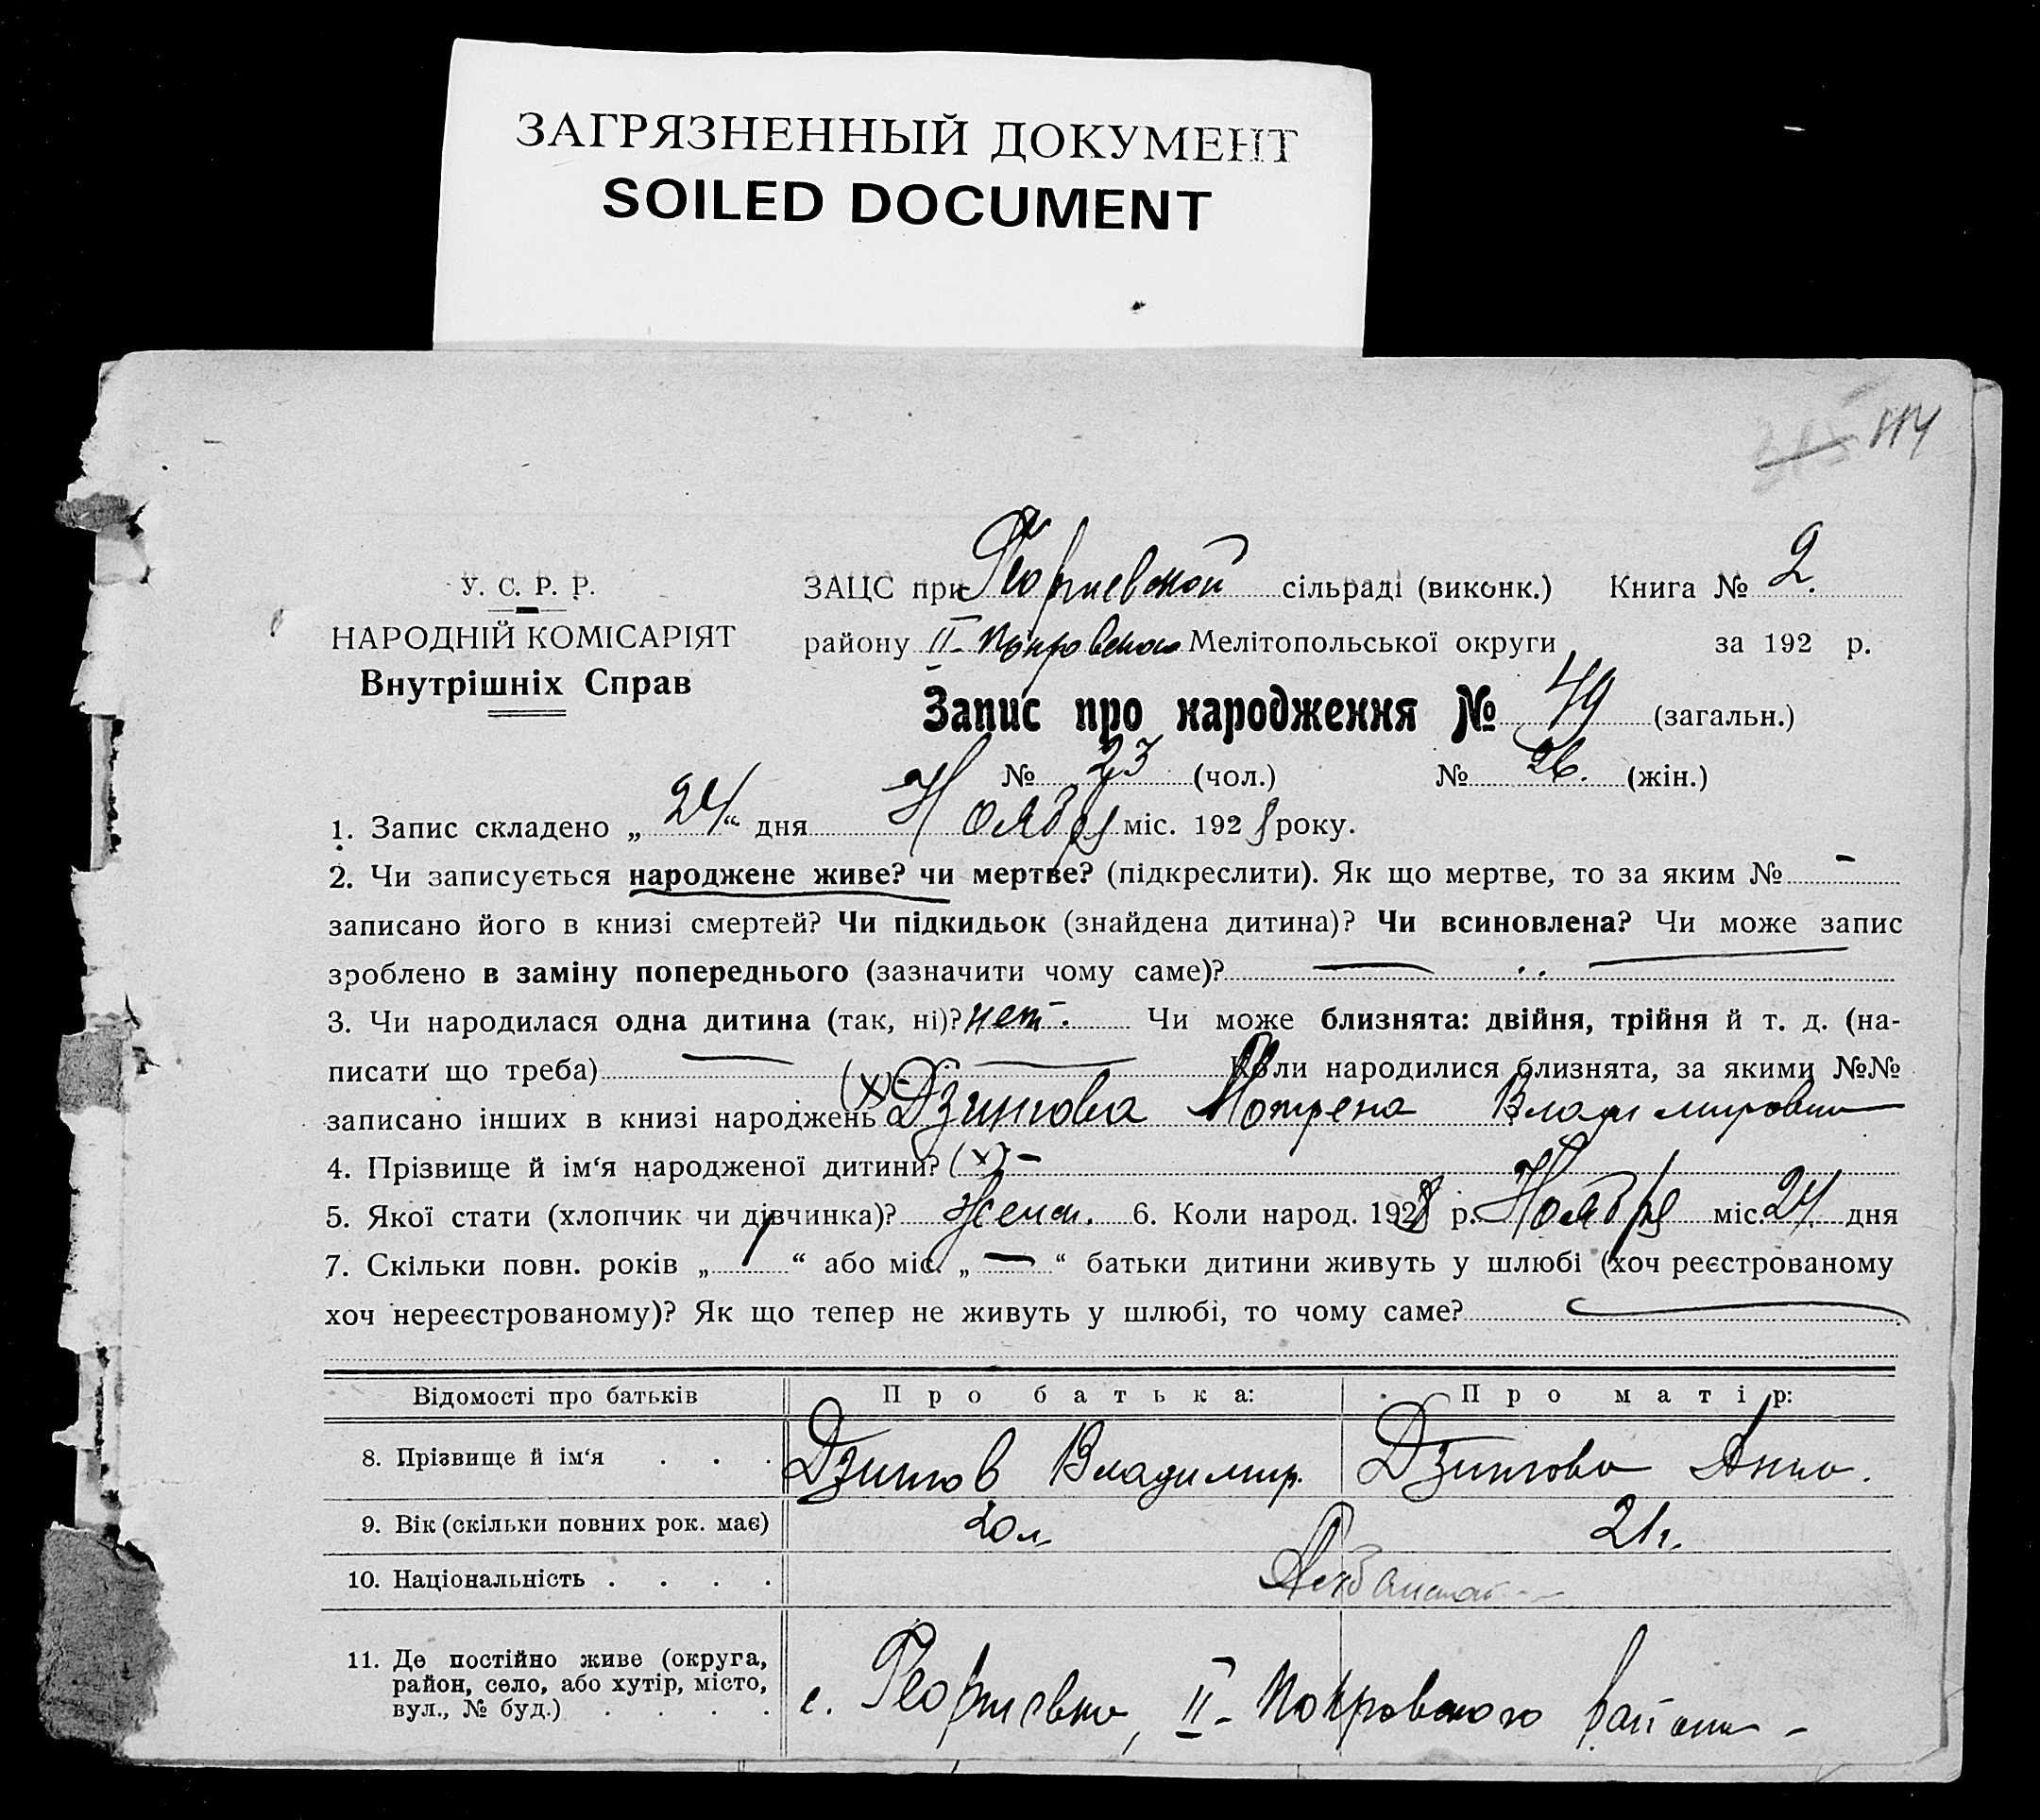 ЗАГРЯЗНЕННЫЙ ДОКУМЕНТ
SOILED DOCUMENT
114
У. С. Р. Р.
НАРОДНІЙ КОМІСАРІЯТ
Внутрішніх Справ
ЗАЦС при Георгиевской сільраді (виконк.) Книга № 2.
району II- Покровского Мелітопольської округи за 192 р.
Запис про народження № 49 (загальн.)
№ 23 (чол.) № 26. (жін.)
1. Запис складено „ 24 “ дня Ноября міс. 1928 року.
2. Чи записується народжене живе? чи мертве? (підкреслити). Як що мертве, то за яким № -
записано його в книзі смертей? Чи підкидьок (знайдена дитина)? Чи всиновлена? Чи може запис
зроблено в заміну попереднього (зазначити чому саме)?
3. Чи народилася одна дитина (так, ні)? нет. Чи може близнята: двійня, трійня й т. д. (на-
писати що треба) Коли народилися близнята, за якими №№
записано інших в книзі народжень (х) Мотрена Владимировна
4. Прізвище й ім‘я народженої дитини? (х) -
5. Якої стати (хлопчик чи дівчинка)? женск. 6. Коли народ. 1928 р. Ноября міс. 24 дня
7. Скільки повн. років „ 1 “ або міс. „ — “ батьки дитини живуть у шлюбі (хоч реєстрованому
хоч нереєстрованому)? Як що тепер не живуть у шлюбі, то чому саме?
Відомості про батьків Про батька: Про матір:
8. Прізвище й ім‘я . . . Владимир. Анна.
9. Вік (скільки повних рок. має) 20 л. 21 г.
10. Національність . . . .
11. Де постійно живе (округа,
район, село, або хутір, місто,
вул., № буд.) . . . .
с. Георгиевка, II- Покровского района -